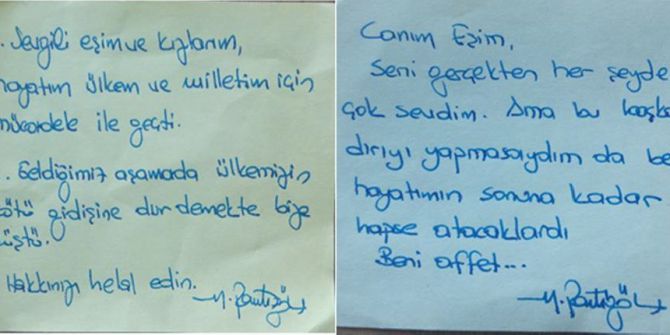 . Sevgili eşim ve kızlarım,
hayatım ülkem ve milletim için
mücadele ile geçti.
. Geldiğimiz aşamada ülkemizin
kötü gidişine dur demekte bize
düştü.
Hakkınızı helal edin.
Canım Eşim,
Seni gerçekten her şeyde
çok sevdim. Ama bu başkal
dırıyı yapmasaydım da be
hayatımın sonuna kadar
hapse atacaklardı
Beni affet...